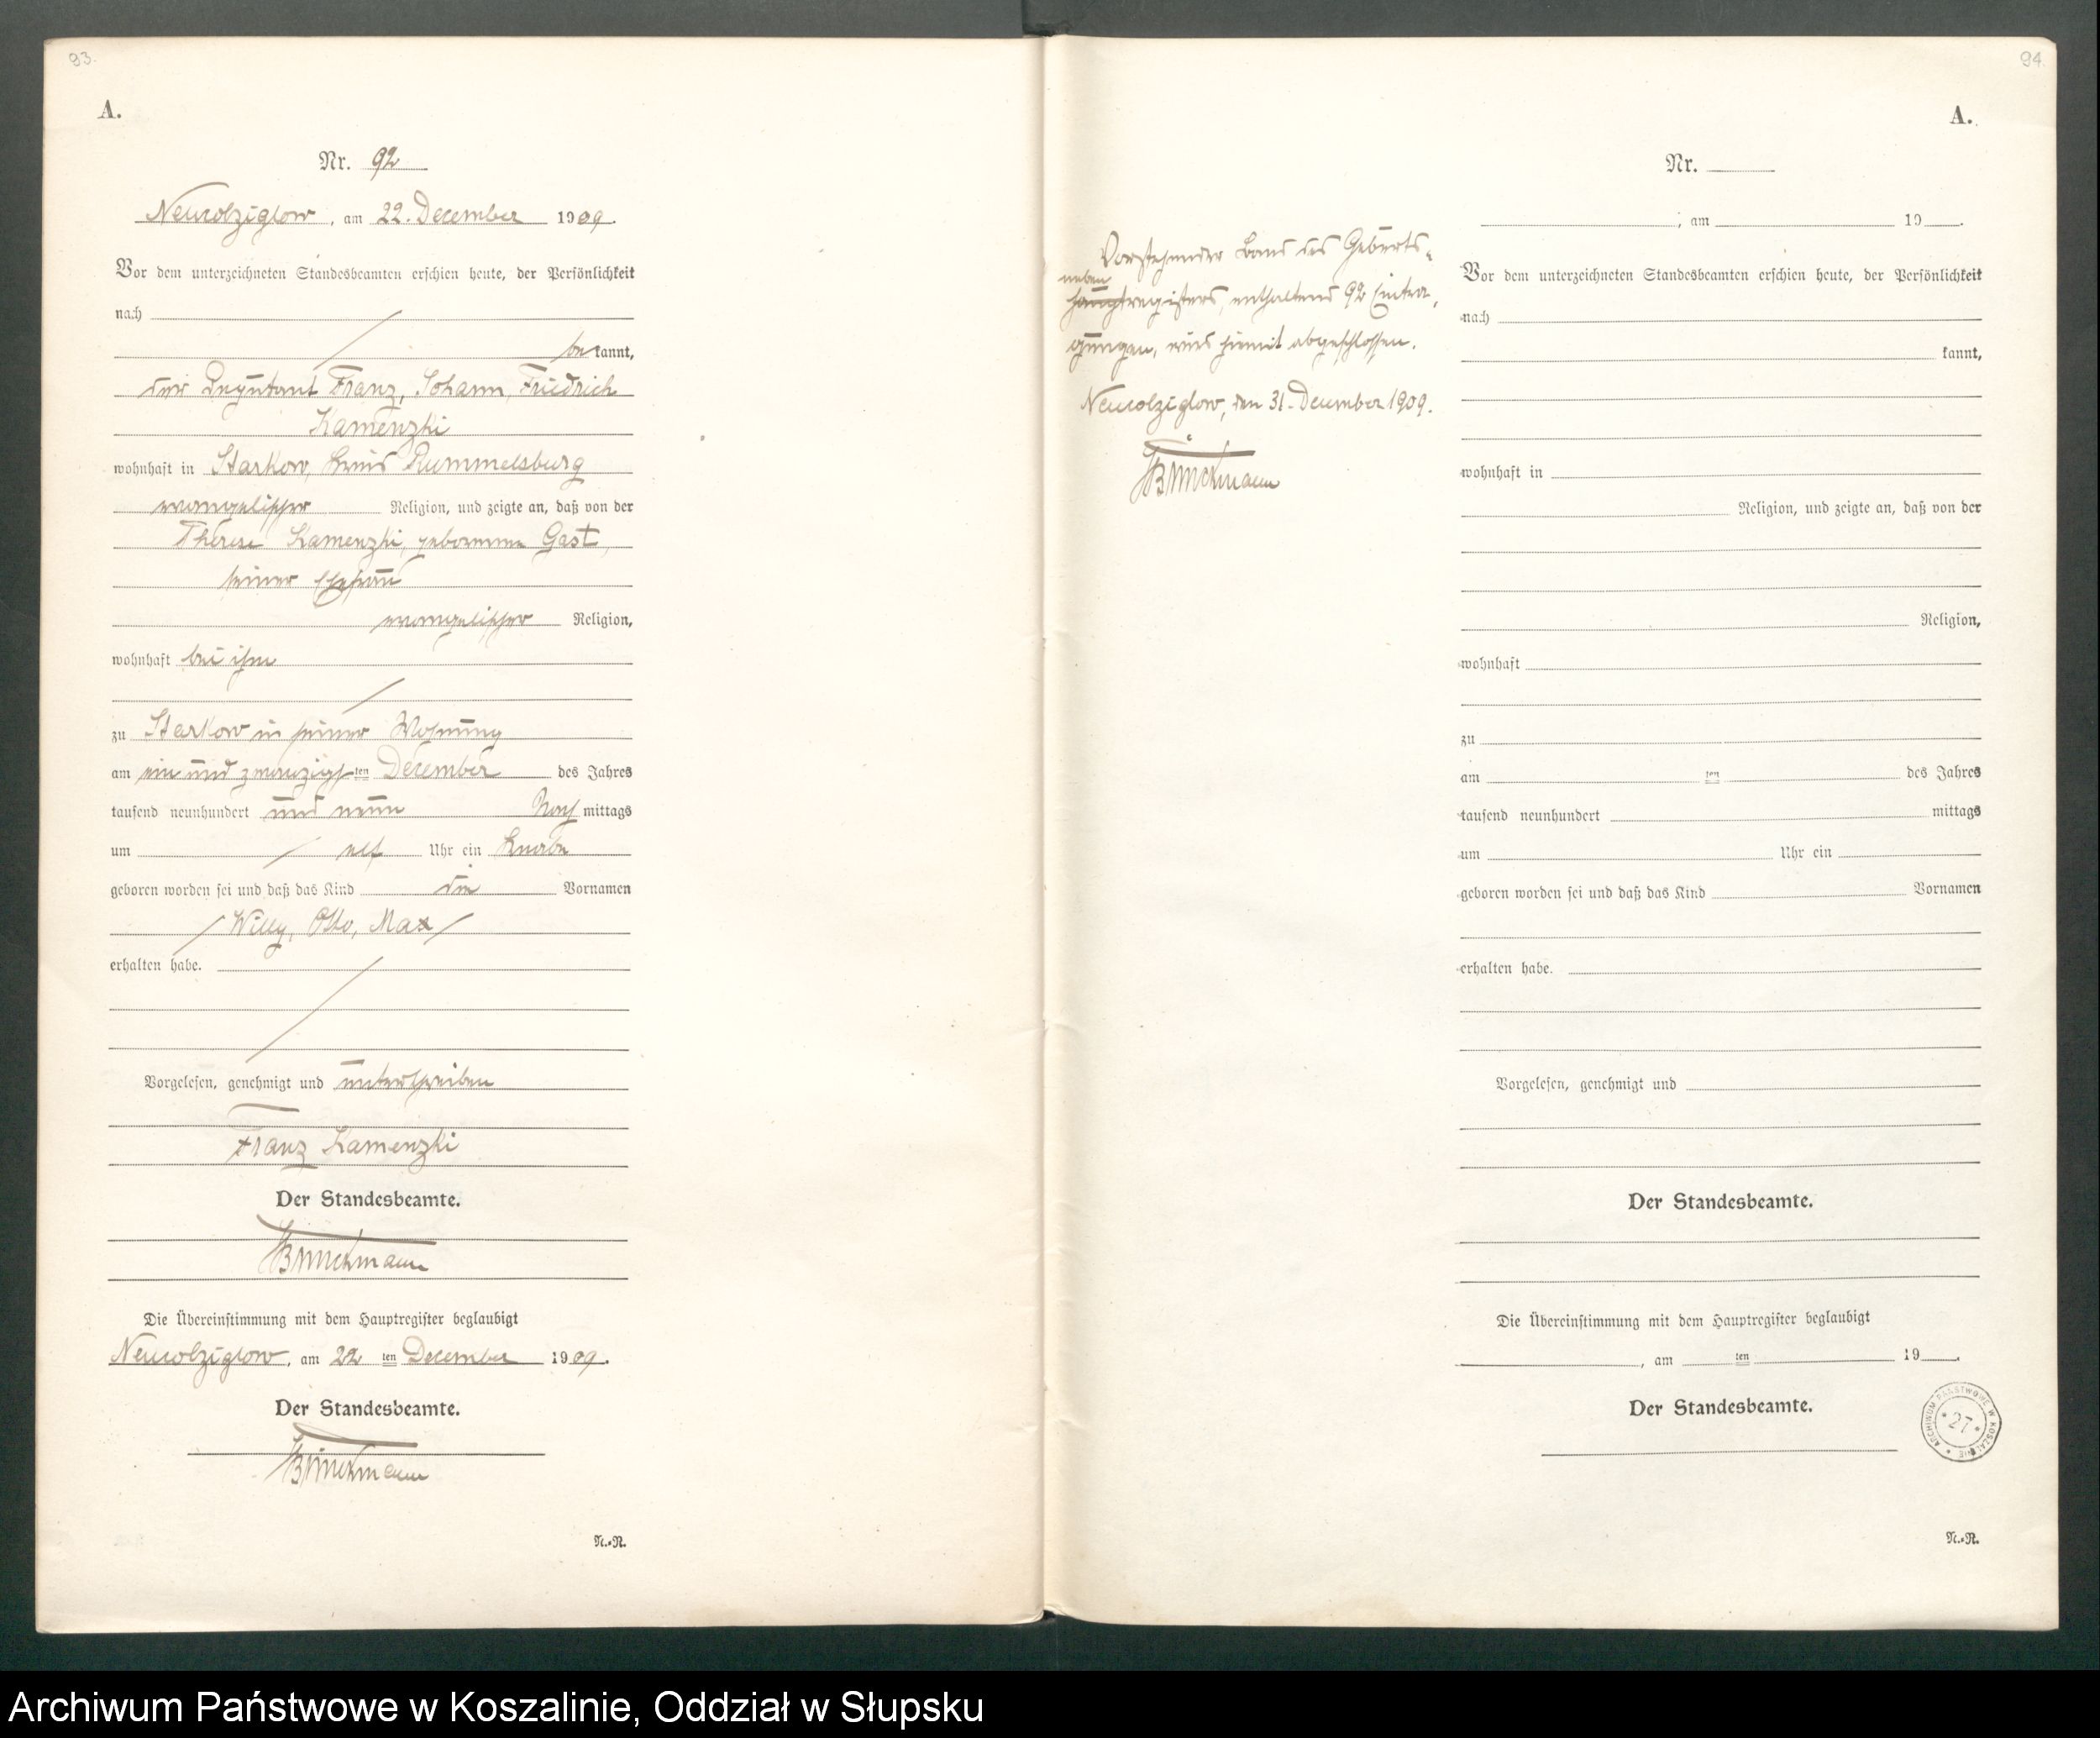 93.
A.
Nr. 92
Neukolziglow, am 22. December 1909.
Vor dem unterzeichneten Standesbeamten erschien heute, der Persönlichkeit
nach
bekannt,
der Franz, Johann, Friedrich
Kamenzki
wohnhaft in Starkow, Kreis Rummelsburg
evangelischer Religion, und zeigte an, daß von der
Therese Kamenzki, geborenen Gast,
seiner Ehefrau
evangelischer Religion,
wohnhaft bei ihm
zu Starkow in seiner Wohnung
am ein und zwanzigsten December des Jahres
tausend neunhundert und neun Nachmittags
um elf Uhr ein Knabe
geboren worden sei und daß das Kind die Vornamen
Willy, Otto, Max
erhalten habe.
Vorgelesen, genehmigt und unterschrieben
Franz Kamenzki
Der Standesbeamte.
Brinckmann
Die Übereinstimmung mit dem Hauptregister beglaubigt
Neukolziglow, am 22 ten December 1909.
Der Standesbeamte.
Brinckmann
N.=R.
94.
A.
Vorstehender Band des Geburts-
neben
hauptregisters, enthaltend 92 Eintra-
gungen, wird hiermit abgeschlossen.
Neukolziglow, den 31. December 1909.
Brinckmann
Nr.
, am 19 .
Vor dem unterzeichneten Standesbeamten erschien heute, der Persönlichkeit
nach
kannt,
wohnhaft in
Religion, und zeigte an, daß von der
Religion,
wohnhaft
zu
am ten des Jahres
tausend neunhundert mittags
um Uhr ein
geboren worden sei und daß das Kind Vornamen
erhalten habe.
Vorgelesen, genehmigt und
Der Standesbeamte.
Die Übereinstimmung mit dem Hauptregister beglaubigt
, am ten 19 .
Der Standesbeamte.
ARCHIWUM PAŃSTWOWE W KOSZALINIE
* 27 *
N.=R.
Archiwum Państwowe w Koszalinie, Oddział w Słupsku